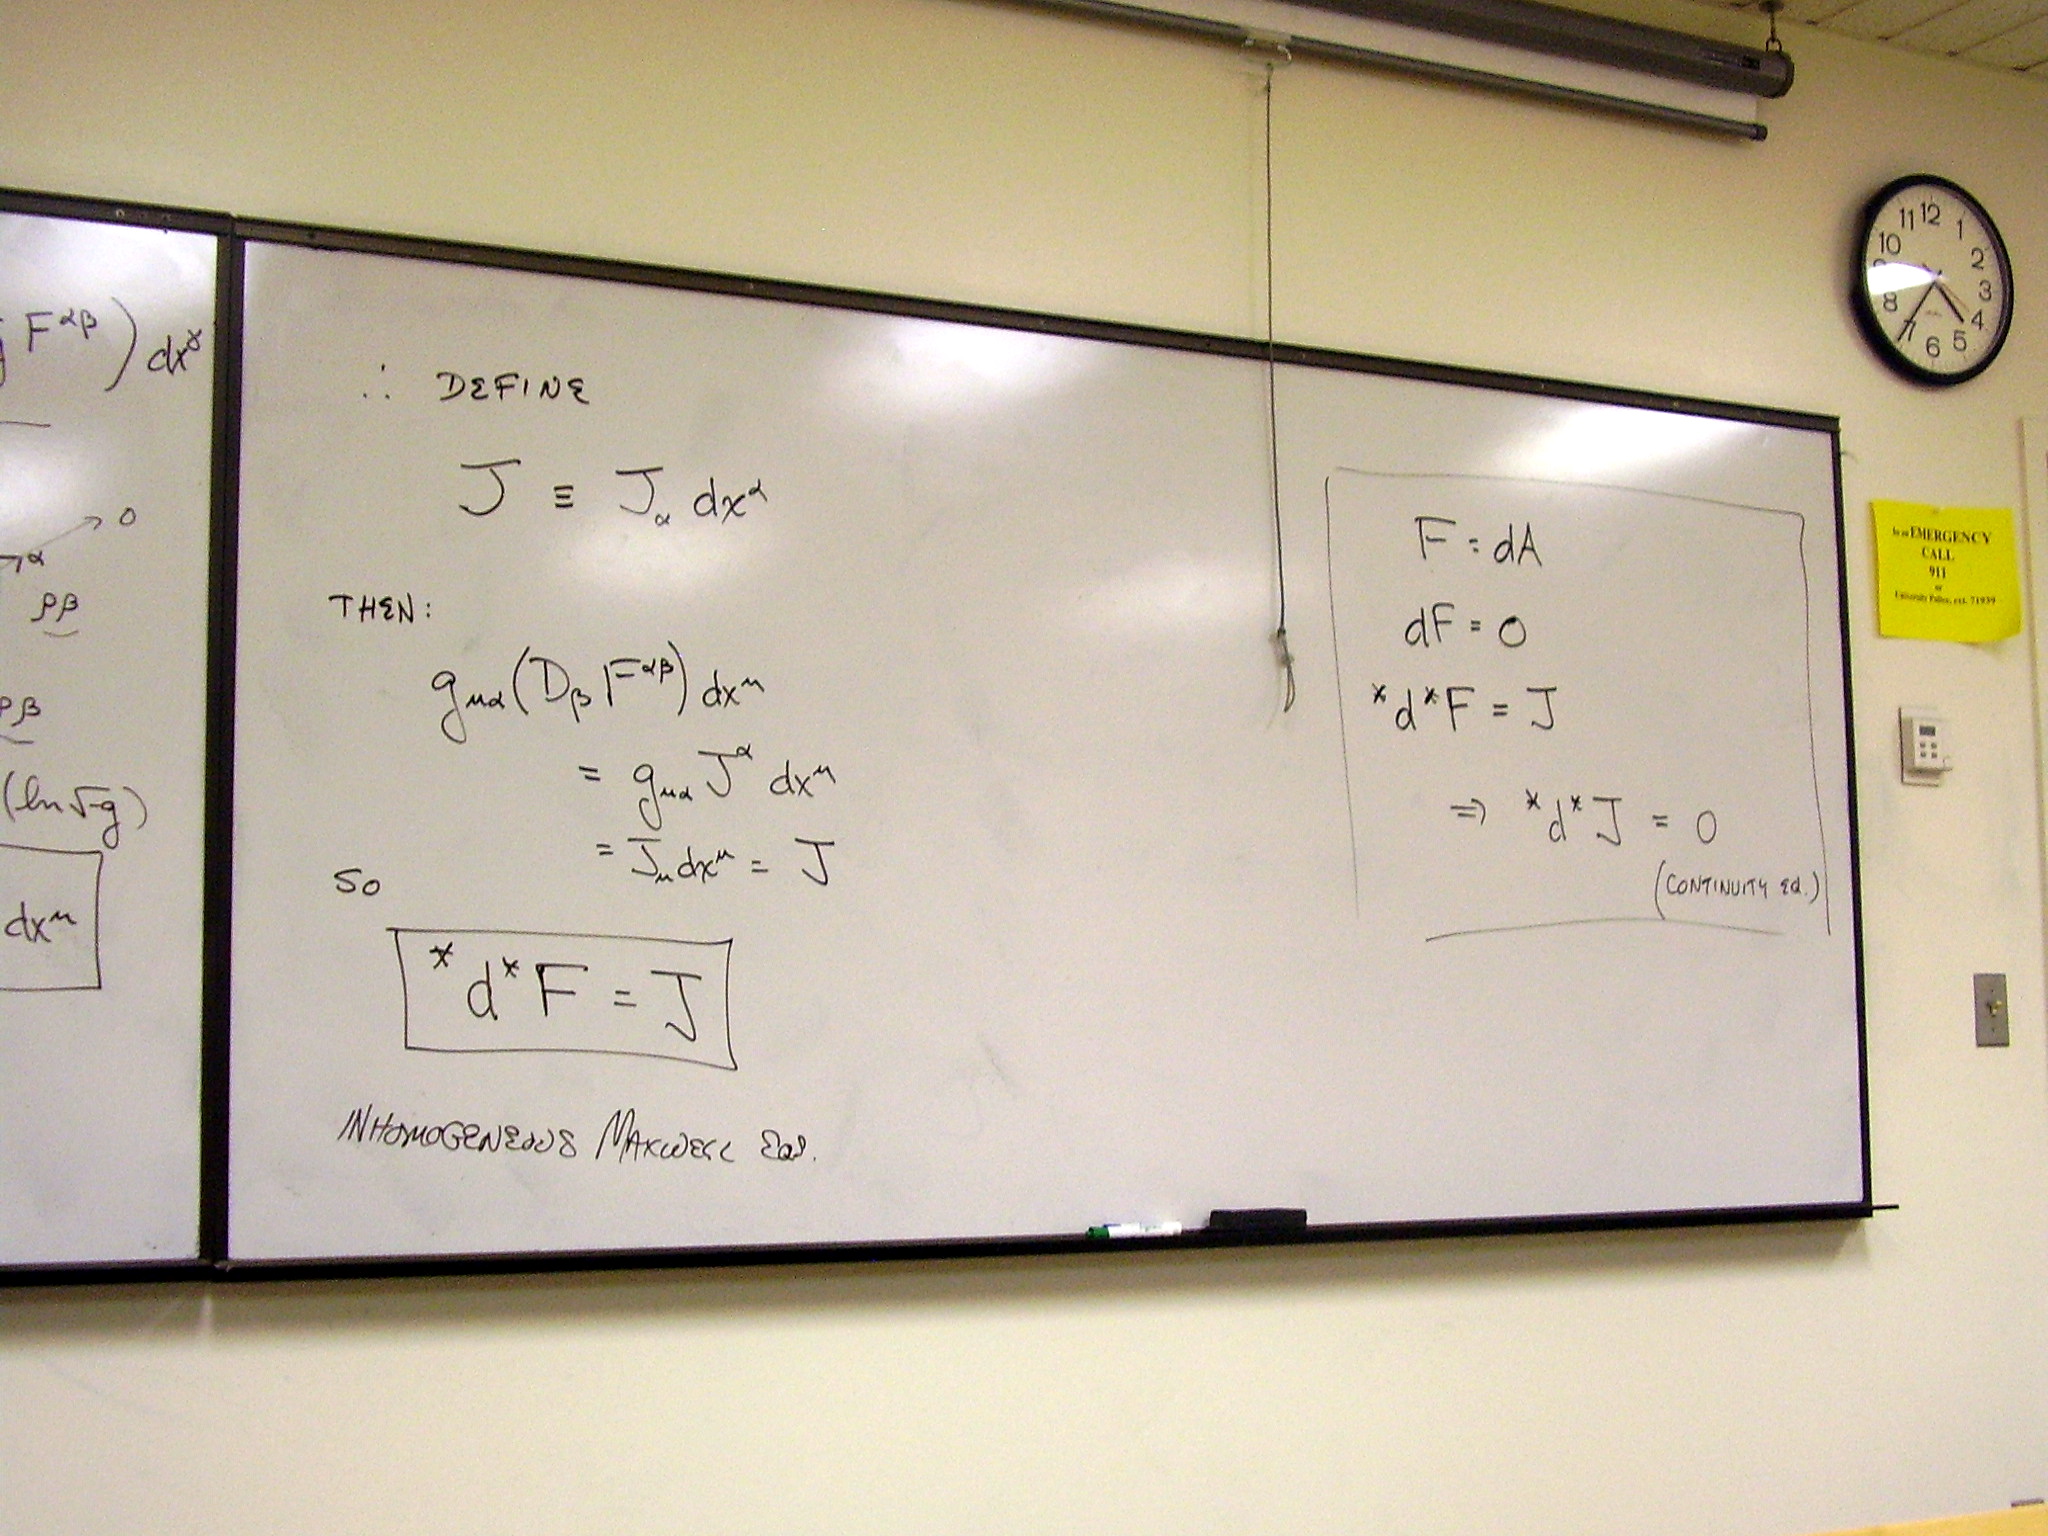 F^{αβ}) dx^γ
→ 0
α
ρβ
ρβ
(ln √-g)
dx^μ
∴ DEFINE
J ≡ J_α dx^α
THEN:
g_{μα}(D_β F^{αβ}) dx^μ
= g_{μα} J^α dx^μ
= J_μ dx^μ = J
SO
*d*F = J
INHOMOGENEOUS MAXWELL EQS.
F = dA
dF = 0
*d*F = J
⇒ *d*J = 0
(CONTINUITY EQ.)
12
1
2
3
4
5
6
7
8
10
11
In an EMERGENCY
CALL
911
or
University Police, ext. 71939